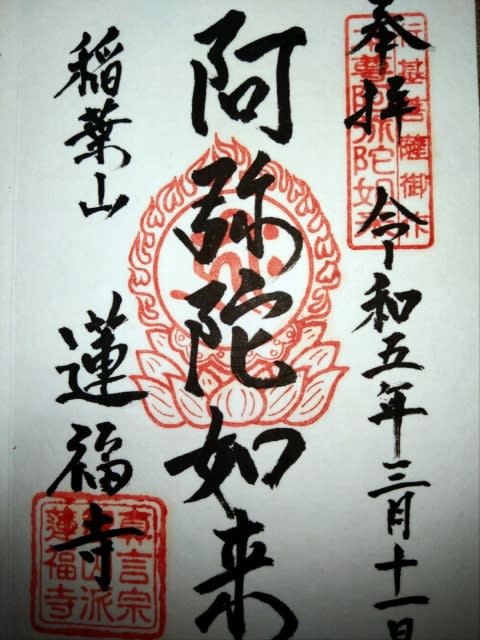 奉拝 令和五年三月十一日
行基菩薩御作
本尊阿弥陀如来
阿弥陀如来
稲葉山 蓮福寺
真言宗
山派
蓮福寺